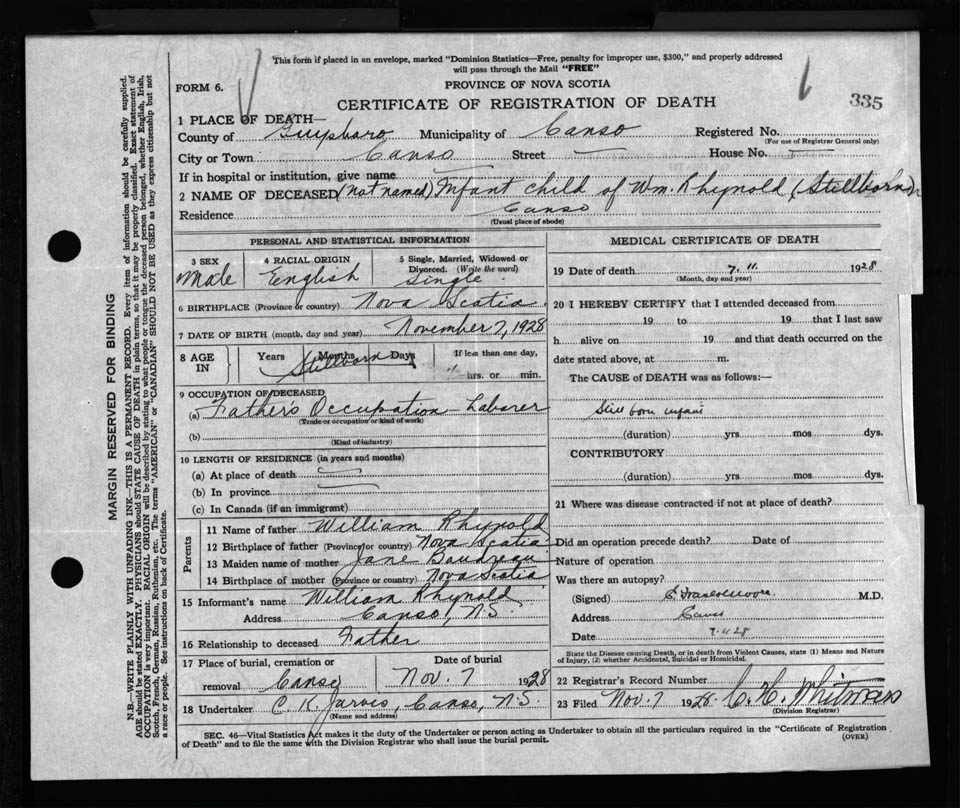 This form if placed in an envelope, marked "Dominion Statistics—Free, penalty for improper use, $300," and properly addressed
will pass through the Mail "FREE"
FORM 6.
PROVINCE OF NOVA SCOTIA
335
CERTIFICATE OF REGISTRATION OF DEATH
1 PLACE OF DEATH—
County of Guysboro Municipality of Canso Registered No.
(For use of Registrar General only)
City or Town Canso Street — House No. —
If in hospital or institution, give name —
2 NAME OF DECEASED (not named) Infant child of Wm. Rhynold (Stillborn)
Residence Canso
(Usual place of abode)
PERSONAL AND STATISTICAL INFORMATION
3 SEX 4 RACIAL ORIGIN 5 Single, Married, Widowed or
Divorced. (Write the word)
Male English Single
6 BIRTHPLACE (Province or country) Nova Scotia
7 DATE OF BIRTH (month, day and year) November 7, 1928
8 AGE IN Years Months Days If less than one day,
Stillborn hrs. or min.
9 OCCUPATION OF DECEASED
(a) Father's Occupation - Laborer
(Trade or occupation or kind of work)
(b)
(Kind of industry)
10 LENGTH OF RESIDENCE (in years and months)
(a) At place of death —
(b) In province —
(c) In Canada (if an immigrant)
Parents
11 Name of father William Rhynold
12 Birthplace of father (Province or country) Nova Scotia
13 Maiden name of mother Jane Boudreau
14 Birthplace of mother (Province or country) Nova Scotia
15 Informant's name William Rhynold
Address Canso, N.S
16 Relationship to deceased Father
17 Place of burial, cremation or Date of burial
removal Canso Nov. 7 1928
18 Undertaker C. H. Jarvis, Canso, N.S.
(Name and address)
MEDICAL CERTIFICATE OF DEATH
19 Date of death 7. 11. 1928
(Month, day and year)
20 I HEREBY CERTIFY that I attended deceased from
19 to 19 that I last saw
h alive on 19 and that death occurred on the
date stated above, at m.
The CAUSE of DEATH was as follows:—
Still born infant
(duration) yrs mos dys.
CONTRIBUTORY
(duration) yrs mos dys.
21 Where was disease contracted if not at place of death?
Did an operation precede death? Date of
Nature of operation
Was there an autopsy?
(Signed) M.D.
Address Canso
Date 7.11.28
State the Disease causing Death, or in death from Violent Causes, state (1) Means and Nature
of Injury, (2) whether Accidental, Suicidal or Homicidal.
22 Registrar's Record Number
23 Filed Nov. 7 1928. C. H. Whitman
(Division Registrar)
SEC. 46—Vital Statistics Act makes it the duty of the Undertaker or person acting as Undertaker to obtain all the particulars required in the "Certificate of Registration
of Death" and to file the same with the Division Registrar who shall issue the burial permit.
(OVER)
MARGIN RESERVED FOR BINDING
N.B.—WRITE PLAINLY WITH UNFADING INK—THIS IS A PERMANENT RECORD. Every item of information should be carefully supplied.
AGE should be stated EXACTLY. PHYSICIANS should STATE CAUSE OF DEATH in plain terms, so that it may be properly classified. Exact statement of
OCCUPATION is very important. RACIAL ORIGIN will be described by stating to what people or tongue the deceased person belonged, whether English, Irish,
Scotch, French, German, Russian, Ruthenian, etc. The terms "AMERICAN" or "CANADIAN" SHOULD NOT BE USED as they express citizenship but not
a race or people. See instructions on back of Certificate.